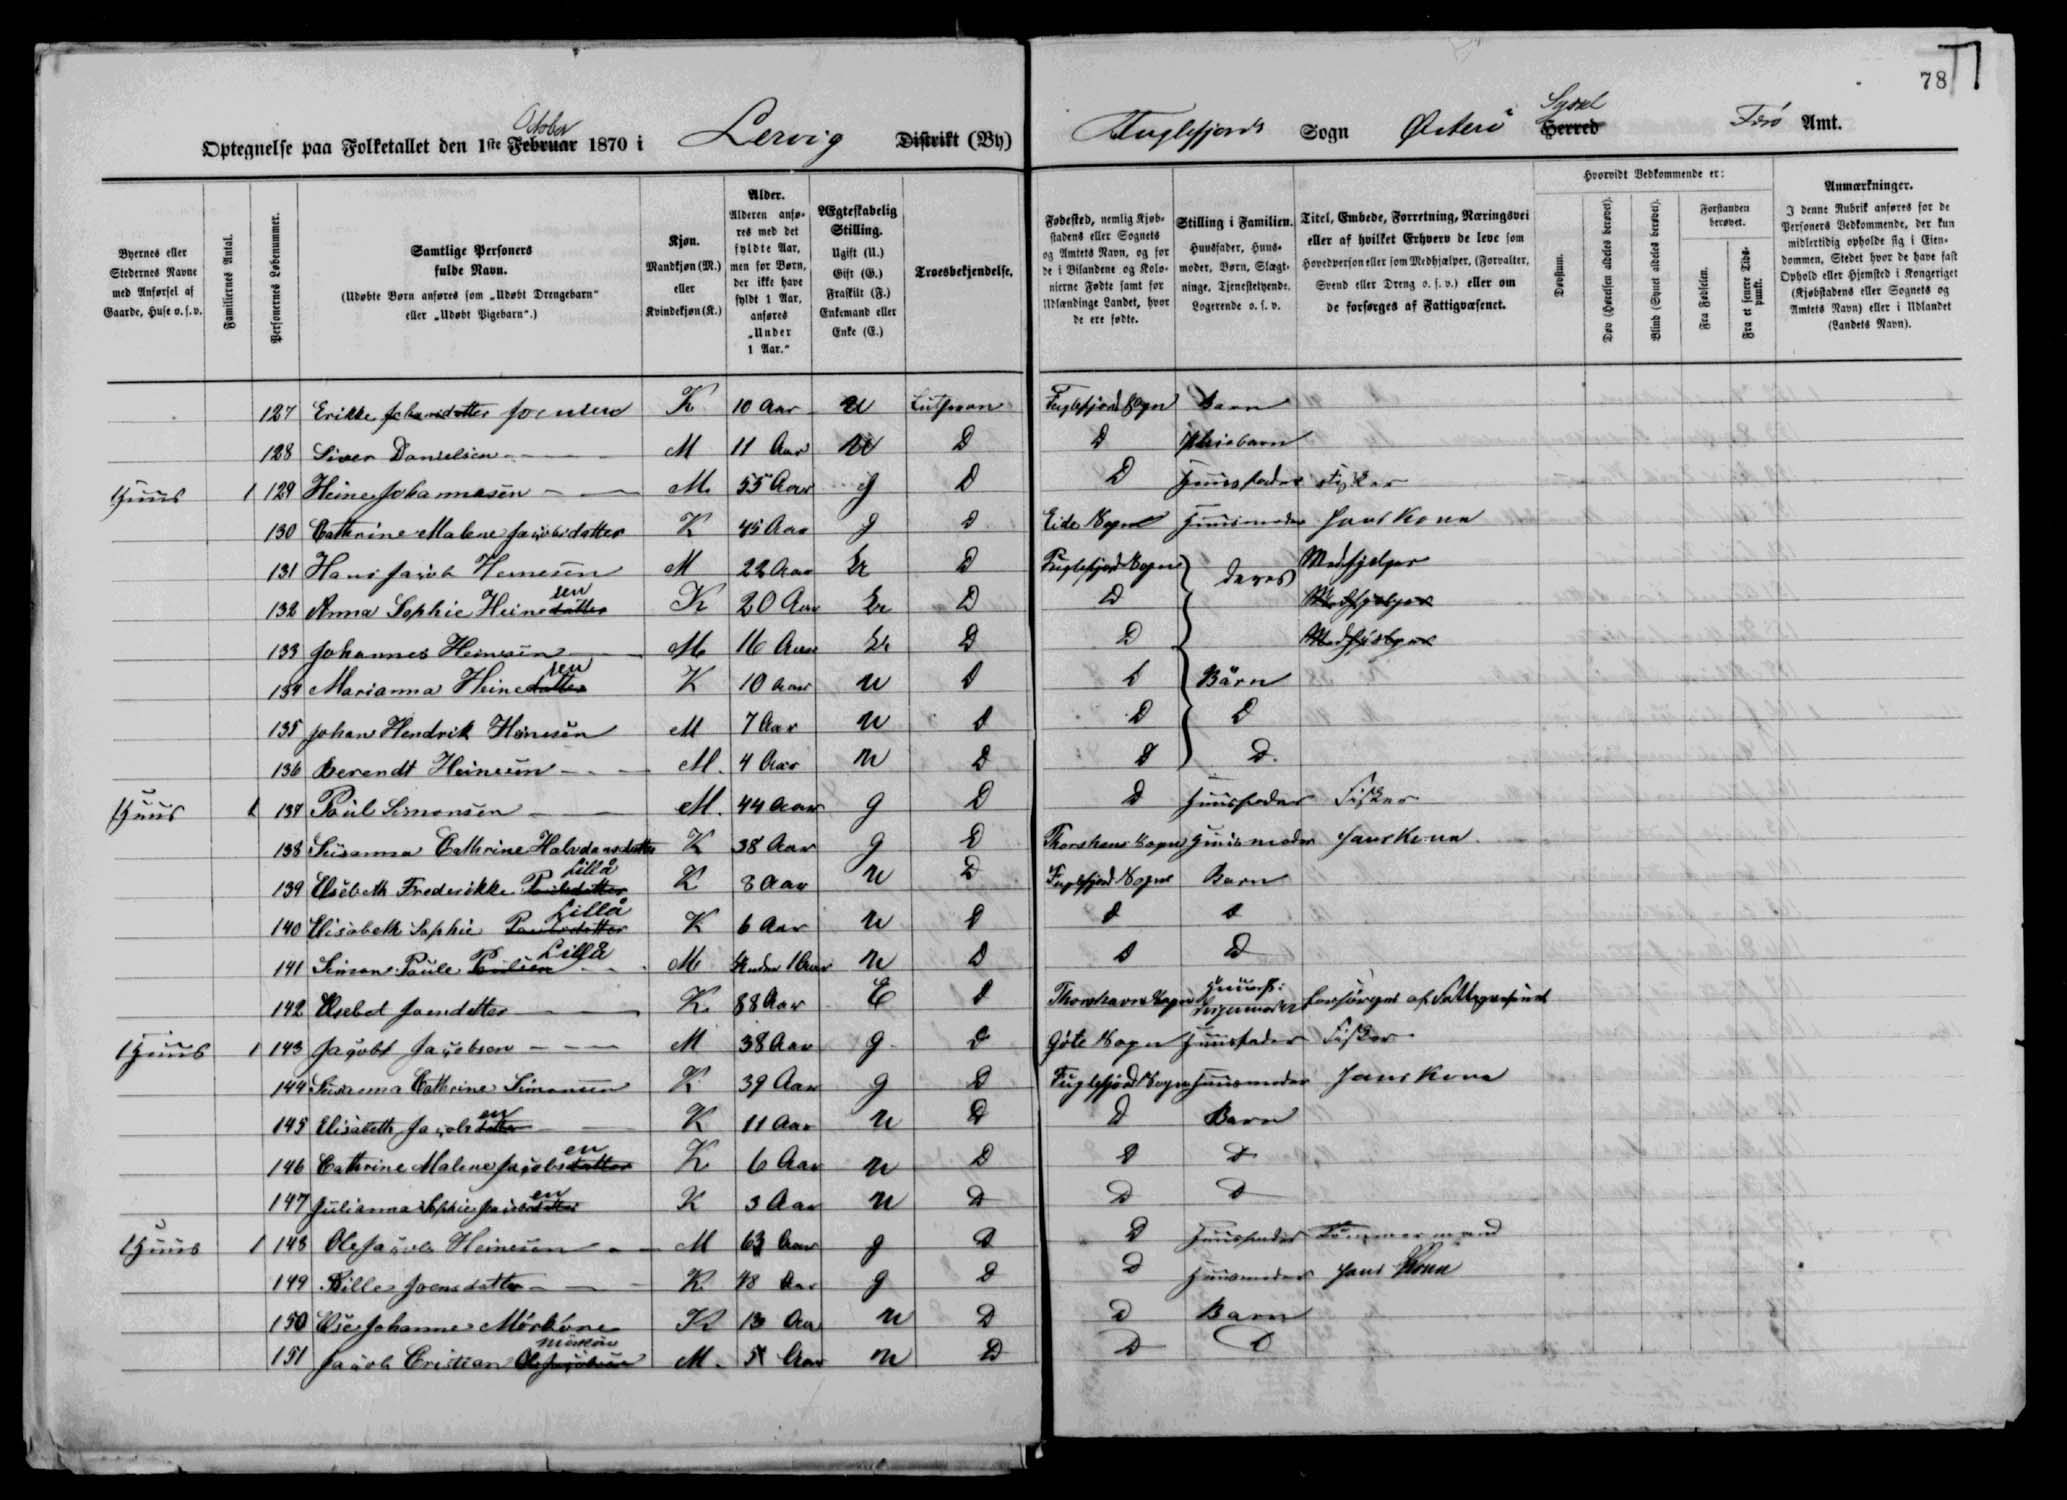 78
Optegnelse paa Folketallet den 1ste Februar October 1870 i Lervig Distrikt (By) Fuglefjords Sogn Østerö Herred Syssel Færö Amt.
Byernes eller Stedernes Navne med Anførsel af Gaarde, Huse o. s. v.
Familiernes Antal.
Personernes Løbenummer.
Samtlige Personers fulde Navn.
(Udøbte Børn anføres som „Udøbt Drengebarn" eller „Udøbt Pigebarn".)
Kjøn.
Mandkjøn (M.) eller Kvindekjøn (K.)
Alder.
Alderen anføres med det fyldte Aar, men for Børn, der ikke have fyldt 1 Aar, anføres „Under 1 Aar."
Ægteskabelig Stilling.
Ugift (U.) Gift (G.) Fraskilt (F.) Enkemand eller Enke (E.)
Troesbekjendelse.
Fødested, nemlig Kjøbstadens eller Sognets og Amtets Navn, og for de i Bilandene og Kolonierne Fødte samt for Udlændinge Landet, hvor de ere fødte.
Stilling i Familien.
Huusfader, Huusmoder, Børn, Slægtninge, Tjenestetyende, Logerende o. s. v.
Titel, Embede, Forretning, Næringsvei eller af hvilket Erhverv de leve som Hovedperson eller som Medhjælper, (Forvalter, Svend eller Dreng o. s. v.) eller om de forsørges af Fattigvæsenet.
Hvorvidt Vedkommende er:
Døvstum.
Døv (Hørelsen aldeles berøvet).
Blind (Synet aldeles berøvet).
Forstanden berøvet.
Fra Fødselen.
Fra et senere Tidspunkt.
Anmærkninger.
I denne Rubrik anføres for de Personers Vedkommende, der kun midlertidig opholde sig i Eiendommen, Stedet hvor de have fast Ophold eller Hjemsted i Kongeriget (Kjøbstadens eller Sognets og Amtets Navn) eller i Udlandet (Landets Navn).
127 Erikke Johansdatter Joensen K 10 Aar U Lutheran Fuglefjord Sogn Barn
128 Siver Danielsen M 11 Aar U D D Pleiebarn
Huus 1 129 Heine Johannesen M. 55 Aar g D D Huusfader Fisker
130 Cathrine Malene Jacobsdatter K 45 Aar g D Eide Sogn Huusmoder Hans Kone
131 Hans Jacob Heinesen M 22 Aar U D Fuglefjord Sogn deres Medhjelper
132 Anna Sophie Heinedatter sen K 20 Aar U D D Medhjelper
133 Johannes Heinesen M 16 Aar U D D Medhjelper
134 Marianna Heinedatter sen K 10 Aar U D D Börn
135 Johan Hendrik Heinesen M 7 Aar U D D D
136 Berendt Heinesen M. 4 Aar U D D D
Huus 1 137 Poul Simonsen M. 44 Aar g D D Huusfader Fisker
138 Susanna Cathrine Halvdansdatter K 38 Aar g D Thorshavn Sogn Huusmoder Hans Kone
139 Elsebeth Frederikke Poulsdatter Lillå K 8 Aar U D Fuglefjord Sogn Barn
140 Elisabeth Sophie Poulsdatter Lillå K 6 Aar U D D D
141 Simon Paule Poulsen Lillå M Under 1 Aar U D D D
142 Elsebet Joensdatter K. 88 Aar E D Thorshavn Sogn forsörget af Fattigvæsenet
Huus 1 143 Jacob Jacobsen M 38 Aar g D Göte Sogn Huusfader Fisker
144 Susanna Cathrine Simonsen K 39 Aar g D Fuglefjord Sogn Huusmoder Hans Kone
145 Elisabeth Jacobsdatter en K 11 Aar U D D Barn
146 Cathrine Malene Jacobsdatter en K 6 Aar U D D D
147 Julianna Sophie Jacobsdatter en K 3 Aar U D D D
Huus 1 148 Ole Jacob Heinesen M 63 Aar g D D Huusfader Tömmermand
149 Billa Joensdatter K 48 Aar g D D Huusmoder Hans Kone
150 Else Johanne Mörköre K 13 Aar U D D Barn
151 Jacob Cristian Olejacobsen Mörköre M. 5 Aar U D D D